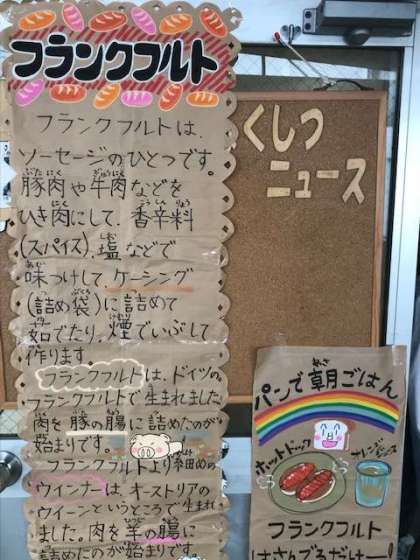 フランクフルト
フランクフルトは、
ソーセージのひとつです。
豚肉や牛肉などを
ひき肉にして、香辛料
(スパイス)、塩などで
味つけして、ケーシング
(詰め袋)に詰めて
茹でたり、煙でいぶして
作ります。
フランクフルトは、ドイツの
フランクフルトで生まれました。
肉を豚の腸に詰めたのが
始まりです。
フランクフルトより細めの
ウインナーは、オーストリアの
ウイーンというところで生まれ
ました。肉を羊の腸に
詰めたのが始まりです
くしつ
ニュース
パンで朝ごはん
ホットドック
オレンジジュース
フランクフルト
はさんでるだけー